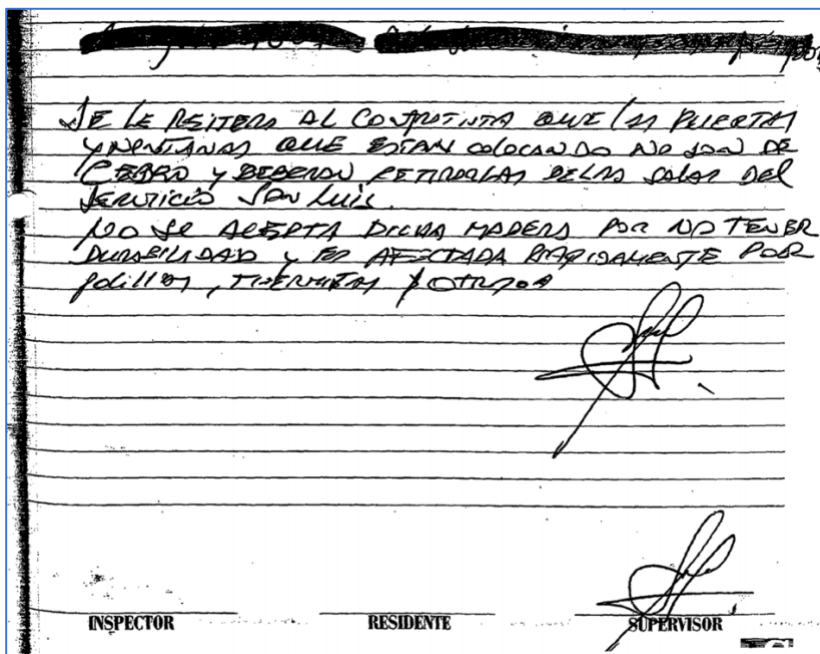 SE LE REITERA AL CONTRATISTA QUE LAS PUERTAS
Y VENTANAS QUE ESTAN COLOCANDO NO SON DE
CEDRO Y DEBERAN RETIRARLAS DE LAS SALAS DEL
SERVICIO SAN LUIS.
NO SE ACEPTA DICHA MADERA POR NO TENER
DURABILIDAD Y ES AFECTADA RAPIDAMENTE POR
POLILLAS, TERMITAS Y OTROS
INSPECTOR RESIDENTE SUPERVISOR